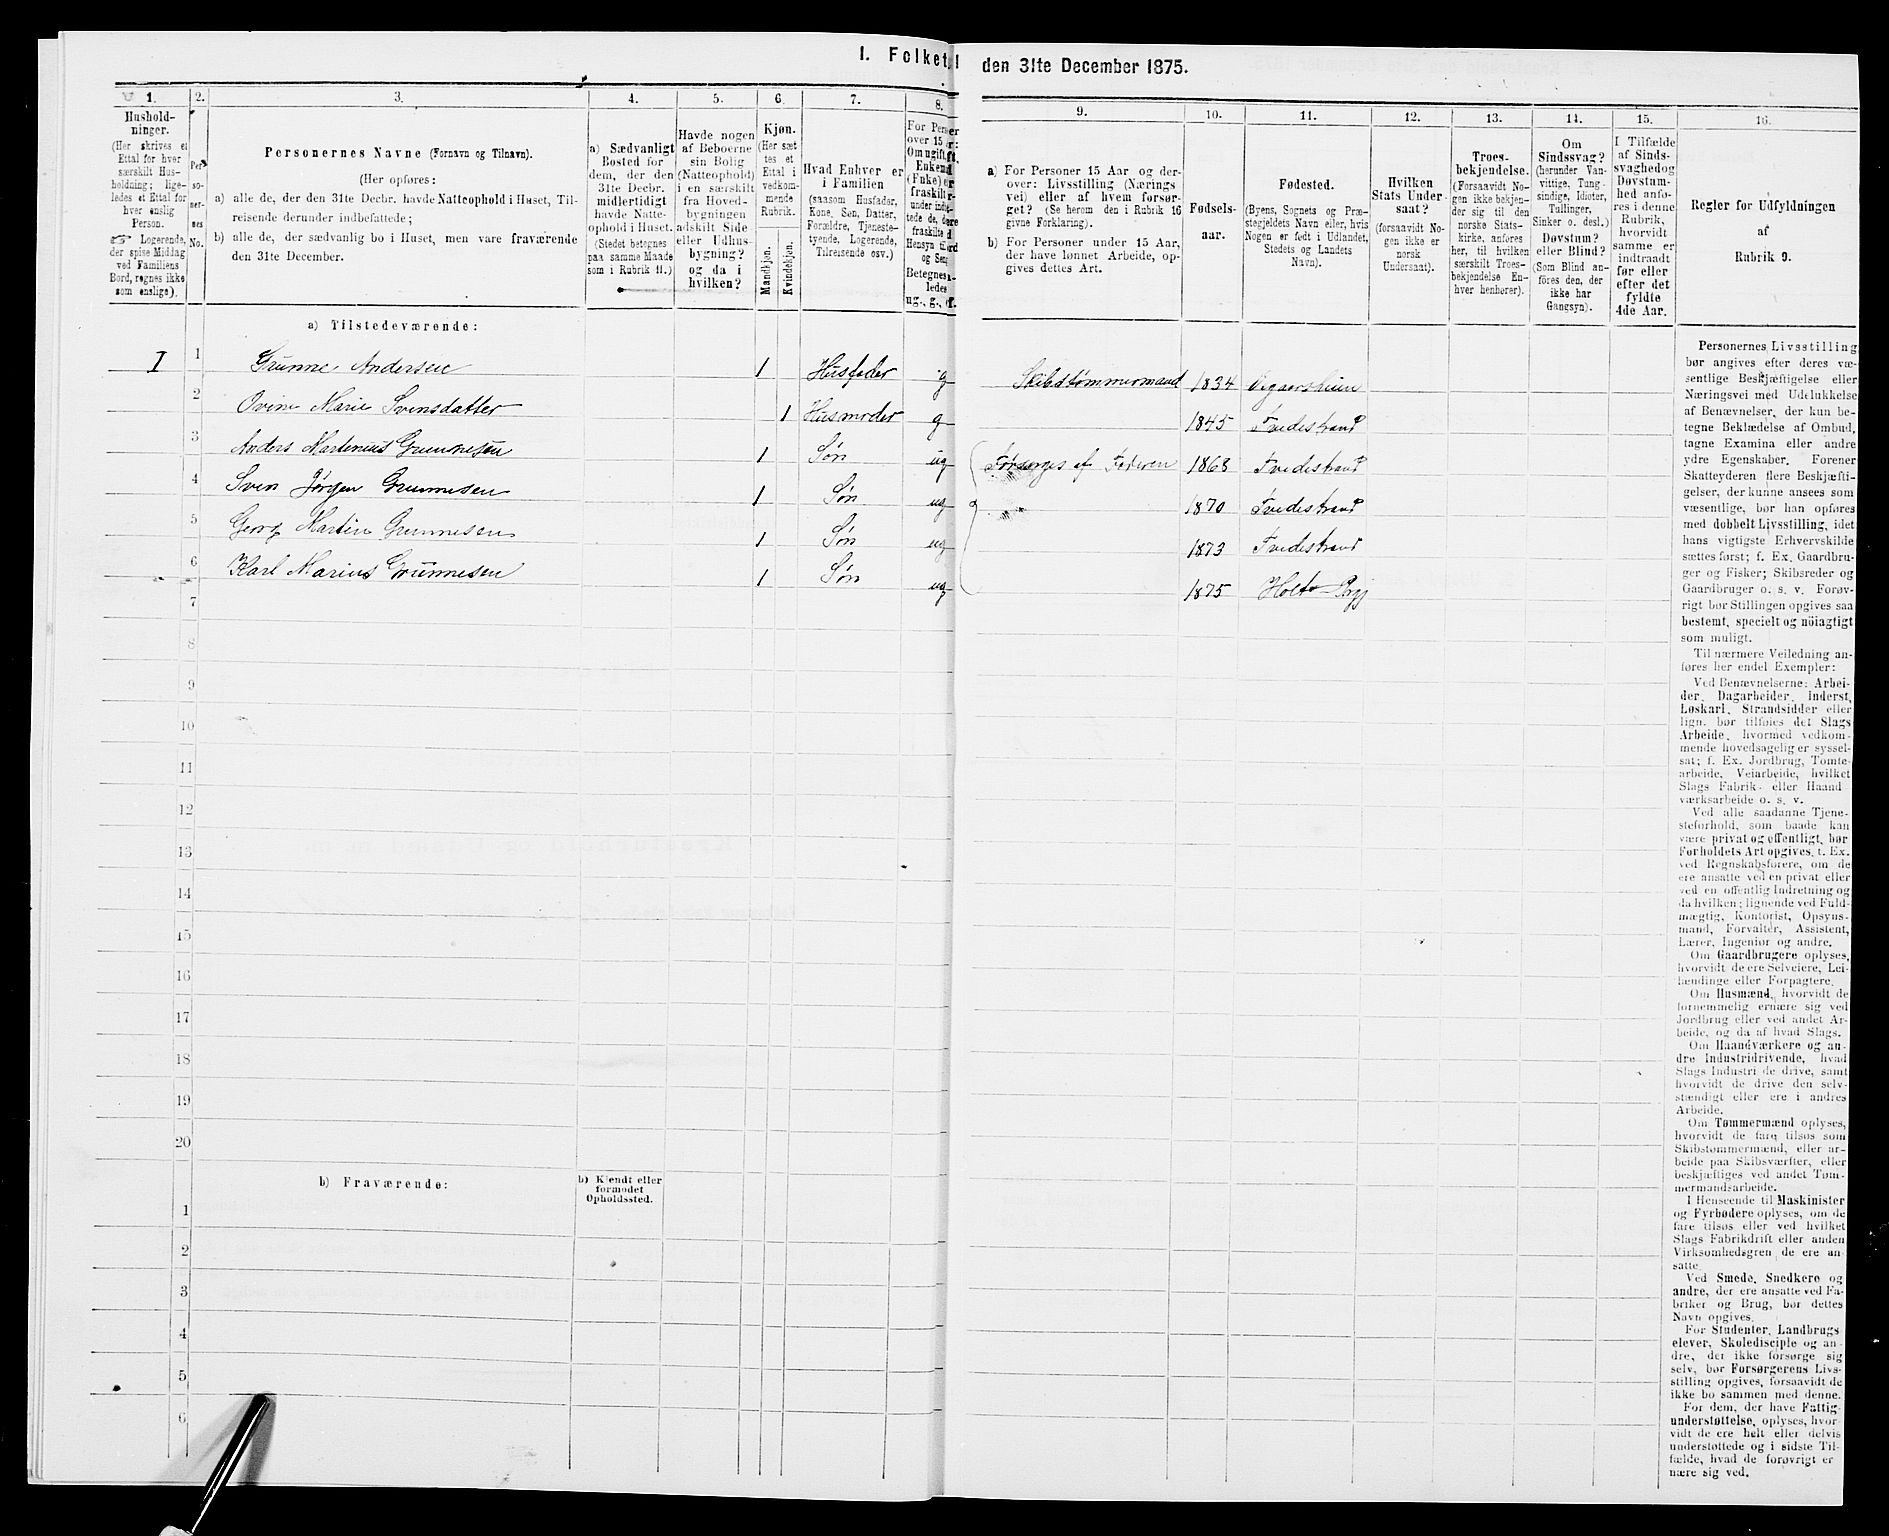 I. Folket
den 31te December 1875.
1.
2.
3.
4.
5.
6.
7.
8.
9.
10.
11.
12.
13.
14.
15.
16.
Hushold-
ninger.
(Her skrives et
Ettal for hver
særskilt Hus-
holdning; lige-
ledes et Ettal for
hver enslig
Person.
Logerende,
der spise Middag
ved Familiens
Bord, regnes ikke
som enslige).
Per
so-
ner-
nes
No.
Personernes Navne (Fornavn og Tilnavn).
(Her opføres:
a) alle de, der den 31te Decbr. havde Natteophold i Huset, Til-
reisende derunder indbefattede;
b) alle de, der sædvanlig bo i Huset, men vare fraværende
den 31te December.
a) Sædvanligt
Bosted for
dem, der den
31te Decbr.
midlertidigt
havde Natte-
ophold i Huset.
(Stedet betegnes
paa samme Maade
som i Rubrik 11.)
Havde nogen
af Beboerne
sin Bolig
(Natteophold)
i en særskilt
fra Hoved-
bygningen
adskilt Side
eller Udhus-
bygning?
og da i
hvilken?
Kjøn.
(Her sæt
tes et
Ettal i
vedkom-
mende
Rubrik.
Mandkjøn.
Kvindekjøn.
Hvad Enhver er
i Familien
(saasom Husfader,
Kone, Søn, Datter,
Forældre, Tjeneste-
tyende, Logerende,
Tilreisende osv.).
For Per
over 15
Om ugift,
Enkem
(Enke) e
fraskilt
under
tede de,
fraskilte
Hensyn til
og Sen
Betegnes
ledes
ug., g.,
a) For Personer 15 Aar og der-
over: Livsstilling (Nærings
vei) eller af hvem forsør-
get? (Se herom den i Rubrik 16
givne Forklaring).
b) For Personer under 15 Aar,
der have lønnet Arbeide, op-
gives dettes Art.
Fødsels-
aar.
Fødested.
(Byens, Sognets og Præ-
stegjeldets Navn eller, hvis
Nogen er født i Udlandet,
Stedets og Landets
Navn).
Hvilken
Stats Under
saat?
(forsaavidt No-
gen ikke er
norsk
Undersaat).
Troes-
bekjendelse.
(Forsaavidt No-
gen ikke bekjen-
der sig til den
norske Stats-
kirke, anføres
her, til hvilken
særskilt Troes-
bekjendelse En-
hver henhører).
Om
Sindssvag?
(herunder Van-
vittige, Tung-
sindige, Idioter,
Tullinger,
Sinker o. desl.)
Døvstum?
eller Blind?
(Som Blind an-
føres den, der
ikke har
Gangsyn).
I Tilfælde
af Sinds-
svaghed og
Døvstum-
hed anfø-
res i denne
Rubrik,
hvorvidt
samme er
indtraadt
før eller
efter det
fyldte
4de Aar.
Regler for Udfyldningen
af
Rubrik 9.
a) Tilstedeværende:
I 1 Grunne Andersen 1 Husfader g Skibstømmermand 1834 Vegaarsheien
2 Ovine Marie Svensdatter 1 Husmoder g 1845 Tvedestrand
3 Anders Martenius Grunnesen 1 Søn ug Forsørges af Faderen 1868 Tvedestrand
4 Sven Jørgen Grunnesen 1 Søn ug 1870 Tvedestrand
5 Georg Martin Grunnesen 1 Søn ug 1873 Tvedestrand
6 Karl Marius Grunnesen 1 Søn ug 1875 Holt Prgj
7
8
9
10
11
12
13
14
15
16
17
18
19
20
b) Fraværende:
b) Kjendt eller
formodet
Opholdssted.
1
2
3
4
5
6
Personernes Livsstilling
bør angives efter deres væ-
sentlige Beskjæftigelse eller
Næringsvei med Udelukkelse
af Benævnelser, der kun be-
tegne Beklædelse af Ombud,
tagne Examina eller andre
ydre Egenskaber. Forener
Skatteyderen flere Beskjæfti-
gelser, der kunne ansees som
væsentlige, bør han opføres
med dobbelt Livsstilling, idet
hans vigtigste Erhvervskilde
sættes først; f. Ex. Gaardbru-
ger og Fisker; Skibsreder og
Gaardbruger o. s. v. Forøv-
rigt bør Stillingen opgives saa
bestemt, specielt og nöiagtigt
som muligt.
Til nærmere Veiledning an-
føres her endel Exempler:
Ved Benævnelserne: Arbei-
der, Dagarbeider, Inderst,
Løskarl, Strandsidder eller
lign. bør tilføies det Slags
Arbeide, hvormed vedkom-
mende hovedsagelig er syssel-
sat; f. Ex. Jordbrug, Tomte-
arbeide, Veiarbeide, hvilket
Slags Fabrik- eller Haand
værksarbeide o. s. v.
Ved alle saadanne Tjene-
steforhold, som baade kan
være privat og offentligt, bør
Forholdets Art opgives, t. Ex.
ved Regnskabsførere, om de
ere ansatte ved en privat eller
ved en offentlig Indretning og
da hvilken; lignende ved Fuld-
mægtig, Kontorist, Opsyns-
mand, Forvalter, Assistent,
Lærer, Ingeniør og andre.
Om Gaardbrugere oplyses,
hvorvidt de ere Selveiere, Lei-
lændinge eller Forpagtere.
Om Husmænd, hvorvidt de
fornemmelig ernære sig ved
Jordbrug eller ved andet Ar-
beide, og da af hvad Slags.
Om Haandværkere og an-
dre Industridrivende, hvad
Slags Industri de drive, samt
hvorvidt de drive den selv-
stændigt eller ere i andres
Arbeide.
Om Tømmermænd oplyses,
hvorvidt de fare tilsøs som
Skibstømmermænd, eller ar-
beide paa Skibsværfter, eller
beskjæftiges ved andet Tøm-
mermandsarbeide.
I Henseende til Maskinister
og Fyrbødere oplyses, om de
fare tilsøs eller ved hvilket
Slags Fabrikdrift eller anden
Virksomhedsgren de ere an
satte.
Ved Smede, Snedkere og
andre, der ere ansatte ved Fa-
briker og Brug, bør dettes
Navn opgives.
For Studenter, Landbrugs
elever, Skoledisciple og an-
dre, der ikke forsørge sig
selv, bør Forsørgerens Livs-
stilling opgives, forsaavidt de
ikke bo sammen med denne.
For dem, der have Fattig
understøttelse, oplyses, hvor-
vidt de ere helt eller delvis
understøttede og i sidste Til-
fælde, hvad de forøvrigt er
nære sig ved.